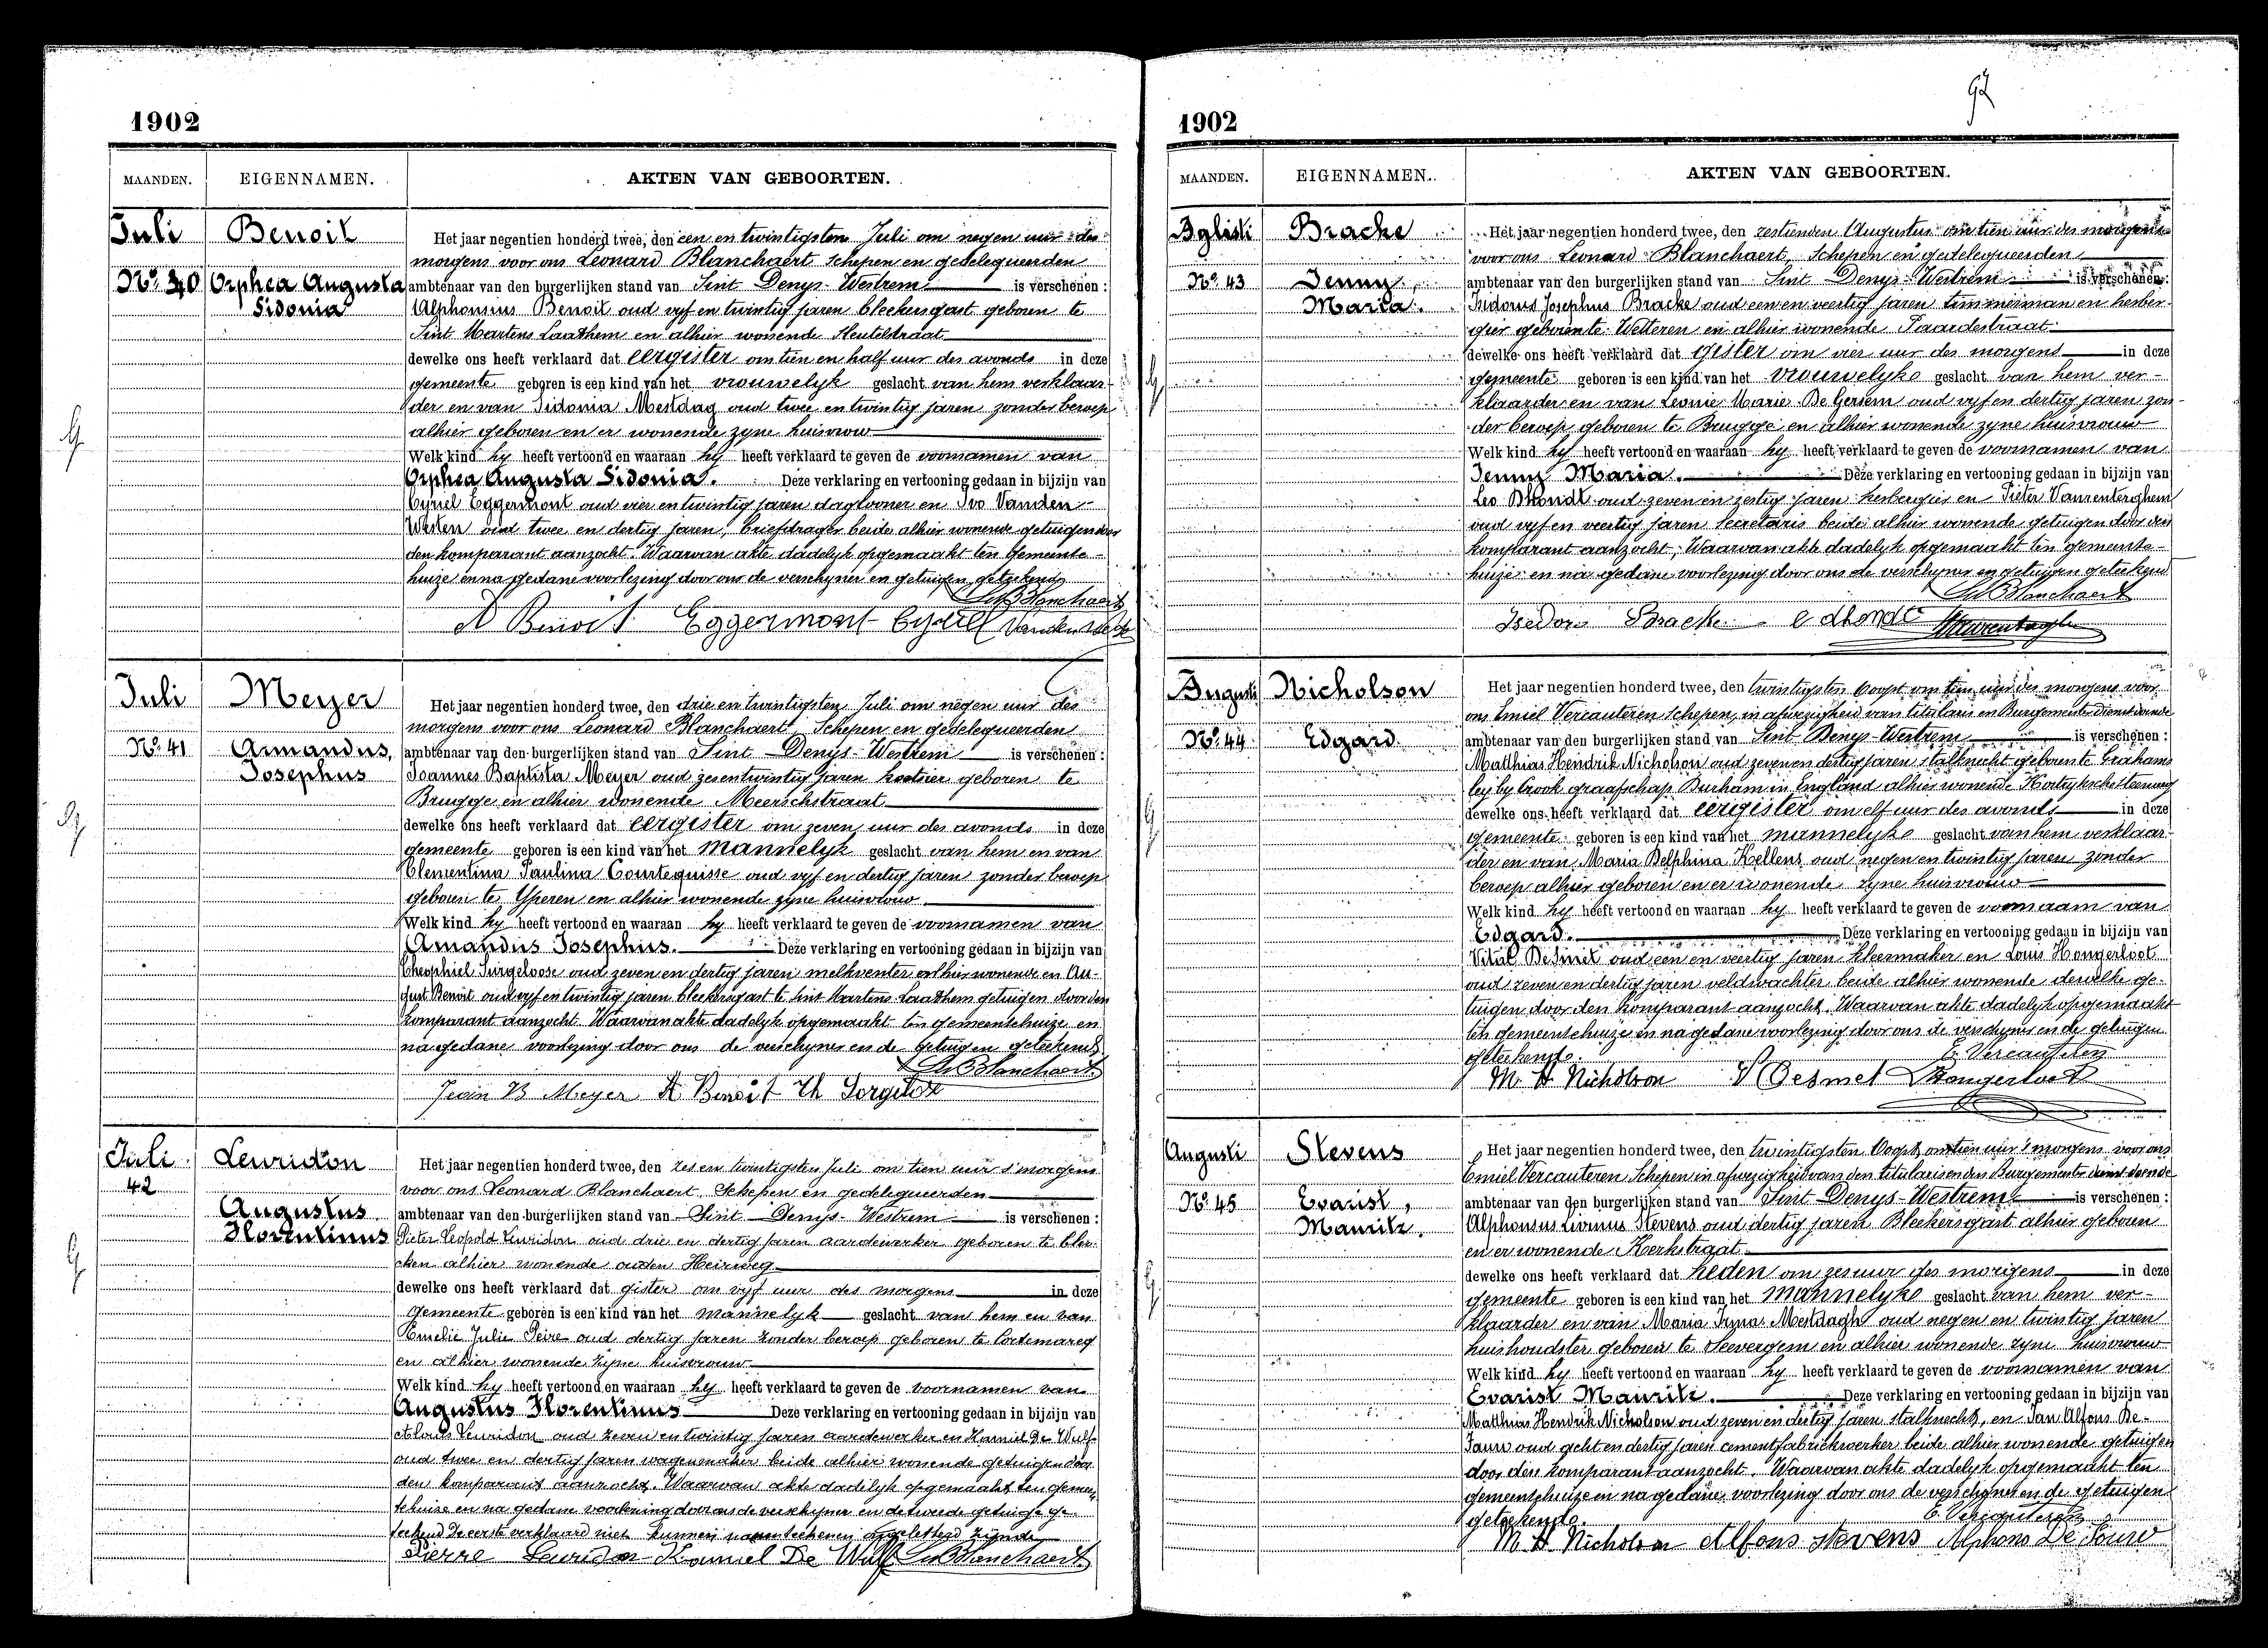 1902
MAANDEN. EIGENNAMEN. AKTEN VAN GEBOORTEN.
Juli
No. 40
Benoit
Orphea Augusta
Sidonia
Het jaar negentien honderd twee, den een en twintigsten Juli om negen uur des
morgens voor ons Leonard Blanchaert Schepen en gedelegueerden
ambtenaar van den burgerlijken stand van Sint Denys-Westrem is verschenen :
Alphonsius Benoit oud vyf en twintig jaren bleekersgast geboren te
Sint Martens Laathem en alhier wonende Sleutelstraat
dewelke ons heeft verklaard dat eergister om tien en half uur des avonds in deze
gemeente geboren is een kind van het vrouwelyk geslacht van hem verklaar-
der en van Sidonia Mestdag oud twee en twintig jaren zonder beroep
alhier geboren en er wonende zyne huisvrouw
Welk kind hy heeft vertoond en waaraan hy heeft verklaard te geven de voornamen van
Orphea Augusta Sidonia. Deze verklaring en vertooning gedaan in bijzijn van
Cyriel Eggermont oud vier en twintig jaren daglooner en Ivo Vanden-
Westen oud twee en dertig jaren, briefdrager beide alhier wonende getuigen door
den komparant aanzocht. Waarvan akte dadelyk opgemaakt ten Gemeente-
huize en na gedane voorlezing door ons de verschyner en getuigen geteekend
Leo Blanchaert
A Benoit Eggermont Cyriel
Juli
No. 41
Meyer
Amandus,
Josephus
Het jaar negentien honderd twee, den drie en twintigsten Juli om negen uur des
morgens voor ons Leonard Blanchaert Schepen en gedelegueerden
ambtenaar van den burgerlijken stand van Sint Denys-Westrem is verschenen :
Joannes Baptista Meyer oud zesentwintig jaren koetsier geboren te
Brugge en alhier wonende Meerschstraat
dewelke ons heeft verklaard dat eergister om zeven uur des avonds in deze
gemeente geboren is een kind van het mannelyk geslacht van hem en van
Clementina Paulina Courtequisse oud vyf en dertig jaren zonder beroep
geboren te Yperen en alhier wonende zyne huisvrouw
Welk kind hy heeft vertoond en waaraan hy heeft verklaard te geven de voornamen van
Amandus Josephus. Deze verklaring en vertooning gedaan in bijzijn van
Theophiel Surgeloose oud zeven en dertig jaren melkventer alhier wonende en Au-
gust Benoit oud vyf en twintig jaren bleekersgast te Sint Martens Laathem getuigen door den
komparant aanzocht. Waarvan akte dadelyk opgemaakt ten gemeentehuize en
na gedane voorlezing door ons de verschyner en de getuigen geteekend
Leo Blanchaert
Jean B Meyer A Benoit Th
Juli
42
Leuridon
Augustus
Florentinus
Het jaar negentien honderd twee, den zes en twintigsten Juli om tien uur 's morgens
voor ons Leonard Blanchaert Schepen en gedelegueerden
ambtenaar van den burgerlijken stand van Sint Denys-Westrem is verschenen :
Pieter Leopold Leuridon oud drie en dertig jaren aardewerker geboren te Cler-
cken alhier wonende ouden Heirweg
dewelke ons heeft verklaard dat gister om vyf uur des morgens in deze
Gemeente geboren is een kind van het mannelyk geslacht van hem en van
Emelie Julie Peire oud dertig jaren zonder beroep geboren te Cortemarcq
en alhier wonende zyne huisvrouw
Welk kind hy heeft vertoond en waaraan hy heeft verklaard te geven de voornamen van
Augustus Florentinus Deze verklaring en vertooning gedaan in bijzijn van
Aloïs Leuridon oud zeven en twintig jaren aardewerker en Kamiel De Wulf
oud twee en dertig jaren wagenmaker beide alhier wonende getuigen door
den komparant aanzocht. Waarvan akte dadelyk opgemaakt ten gemeen-
tehuize en na gedane voorlezing door ons de verschyner en de tweede getuige ge-
teekend De eerste verklaard niet kunnen naamteekenen ongeletterd zijnde
Pierre Leuridon Kamiel De Wulf Leo Blanchaert
1902
MAANDEN. EIGENNAMEN. AKTEN VAN GEBOORTEN.
No. 43
Bracke
Jenny,
Maria.
Het jaar negentien honderd twee, den zestienden Augustus om tien uur des morgens
voor ons Leonard Blanchaert, Schepen en gedelegueerden
ambtenaar van den burgerlijken stand van Sint Denys-Westrem is verschenen :
Isidorus Josephus Bracke oud een en veertig jaren timmerman en herber-
gier geboren te Wetteren en alhier wonende Paardestraat
dewelke ons heeft verklaard dat gister om vier uur des morgens in deze
gemeente geboren is een kind van het vrouwelyke geslacht van hem ver-
klaarder en van Leonie Marie De Gersem oud vyf en dertig jaren zon-
der beroep geboren te Brugge en alhier wonende zyne huisvrouw
Welk kind hy heeft vertoond en waaraan hy heeft verklaard te geven de voornamen van
Jenny Maria. Deze verklaring en vertooning gedaan in bijzijn van
Leo Dhondt oud zeven en zestig jaren herbergier en Pieter Vanrenterghem
oud vyf en veertig jaren secretaris beide alhier wonende getuigen door den
komparant aanzocht, Waarvan akte dadelyk opgemaakt ten gemeente-
huize en na gedane voorlezing door ons de verschyner en getuigen geteekend
Leo Blanchaert
Isedoor Bracke
Augusti
No. 44
Nicholson
Edgard
Het jaar negentien honderd twee, den twintigsten Oogst om tien uur des morgens voor
ons Emiel Vercauteren Schepen, in afwezigheid van titularis en Burgemeester dienstdoende
ambtenaar van den burgerlijken stand van Sint Denys-Westrem is verschenen :
Matthias Hendrik Nicholson oud zeven en dertig jaren stalknecht geboren te Grahams
ley by Crook graafschap Durham in England alhier wonende Kortryksche steenweg
dewelke ons heeft verklaard dat eergister om elf uur des avonds in deze
gemeente geboren is een kind van het mannelyke geslacht van hem verklaar-
der en van Maria Delphina Kellens oud negen en twintig jaren zonder
beroep alhier geboren en er wonende zyne huisvrouw
Welk kind hy heeft vertoond en waaraan hy heeft verklaard te geven de voornaam van
Edgard. Deze verklaring en vertooning gedaan in bijzijn van
Vital De Smet oud een en veertig jaren kleermaker en Louis Hongerloot
oud zeven en dertig jaren veldwachter beide alhier wonende dewelke ge-
tuigen door den komparant aanzocht. Waarvan akte dadelyk opgemaakt
ten gemeentehuize en na gedane voorlezing door ons de verschyner en de getuigen
geteekend.
E. Vercauteren
M. H Nicholson V Desmet L Hongerloot
Augusti
No. 45
Stevens
Evarist,
Mauritz.
Het jaar negentien honderd twee, den twintigsten Oogst om tien uur 's morgens voor ons
Emiel Vercauteren Schepen in afwezigheid van den titularis en den Burgemeester dienstdoende
ambtenaar van den burgerlijken stand van Sint Denys-Westrem is verschenen :
Alphonsus Livinus Stevens oud dertig jaren Bleekersgast alhier geboren
en er wonende Kerkstraat
dewelke ons heeft verklaard dat heden om zes uur des morgens in deze
gemeente geboren is een kind van het mannelyke geslacht van hem ver-
klaarder en van Maria Irma Mestdagh oud negen en twintig jaren
huishoudster geboren te Seevergem en alhier wonende zyne huisvrouw
Welk kind hy heeft vertoond en waaraan hy heeft verklaard te geven de voornamen van
Evarist Mauritz. Deze verklaring en vertooning gedaan in bijzijn van
Matthias Hendrik Nicholson oud zeven en dertig jaren stalknecht, en Jan Alfons De-
Pauw oud acht en dertig jaren cementfabriekwerker beide alhier wonende getuigen
door den komparant aanzocht. Waarvan akte dadelyk opgemaakt ten
gemeentehuize en na gedane voorlezing door ons de verschyner en de getuigen
geteekend.
E. Vercauteren
M. H Nicholson Alfons Stevens Alphons De Pauw